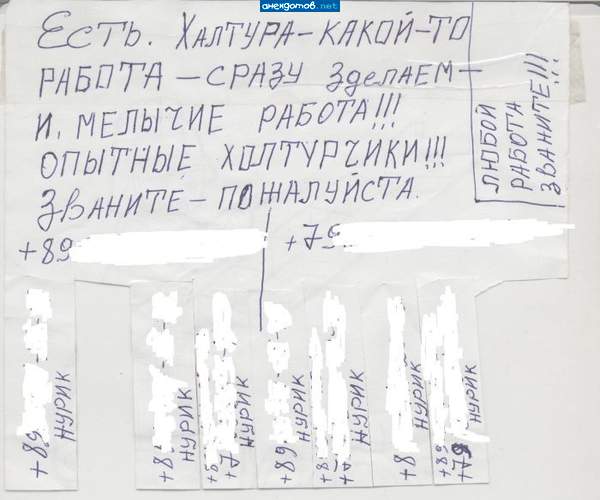 анекдотов.net
Есть. Халтура-какой-то
работа - сразу зделаем-
и, мелычие работа!!!
опытные холтурчики!!!
Званите - пожалуйста.
любой
работа
званите!!!
+89
+79
+89
Нурик
+8
Нурик
+8
+7
Нурик
+89
Нурик
+8
+7
Нурик
+8
Нурик
+89
+79
Нурик